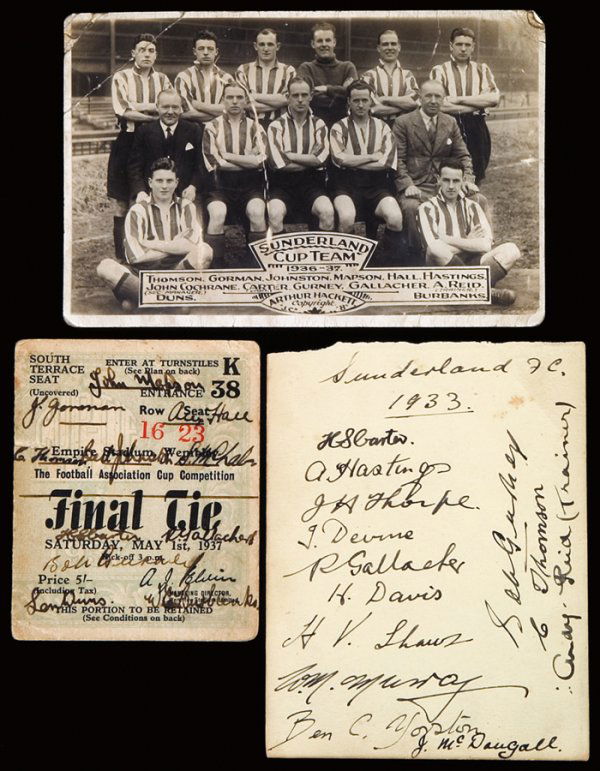 SUNDERLAND
CUP TEAM
1936-37.
THOMSON, GORMAN, JOHNSTON, MAPSON, HALL, HASTINGS,
JOHN COCHRANE, CARTER, GURNEY, GALLACHER, A. REID.
(SEC. MANAGER) (TRAINER)
DUNS. ARTHUR HACKETT BURBANKS.
Copyright.
SOUTH
TERRACE
SEAT
(Uncovered)
ENTER AT TURNSTILES
(See Plan on back)
K
ENTRANCE 38
John Mapson
J. Gorman
Row Seat
Alex Hall
16 23
C Thomson
Empire Stadium, Wembley
The Football Association Cup Competition
Final Tie
R Gallacher
SATURDAY, MAY 1st, 1937
Kick-off 3 p.m.
Bob Gurney
Price 5/-
(Including Tax)
MANAGING DIRECTOR,
Len Duns
E Burbanks
THIS PORTION TO BE RETAINED
(See Conditions on back)
Sunderland F.C.
1933.
H S Carter.
A Hastings
J H Thorpe.
J. Devine
P Gallacher
H. Davis
H V. Shaw
W. M. Murray
Ben C. Yorston
J. McDougall.
Bob Gurney
C Thomson
Andy. Reid (Trainer)